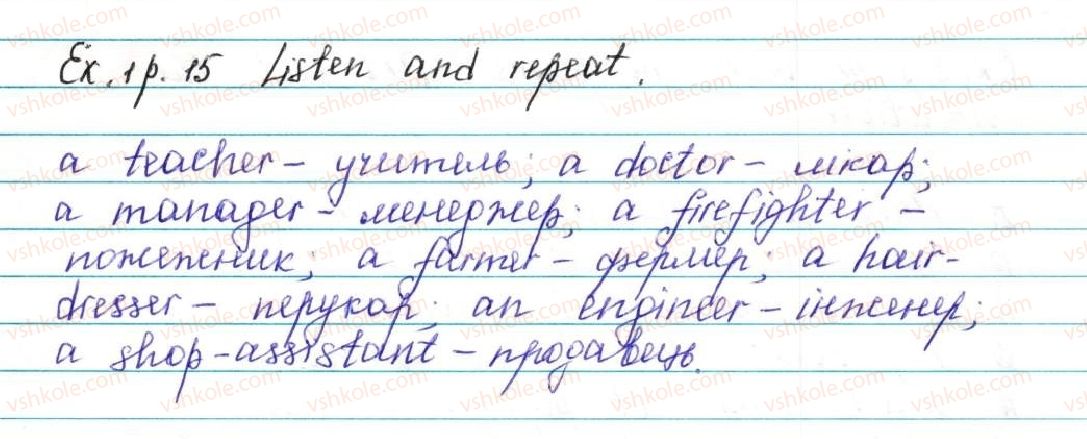 Ex. 1 p. 15 Listen and repeat.
a teacher – учитель; a doctor – лікар;
a manager – менеджер; a firefighter –
пожежник; a farmer – фермер; a hair-
dresser – перукар; an engineer – інженер;
a shop-assistant – продавець.